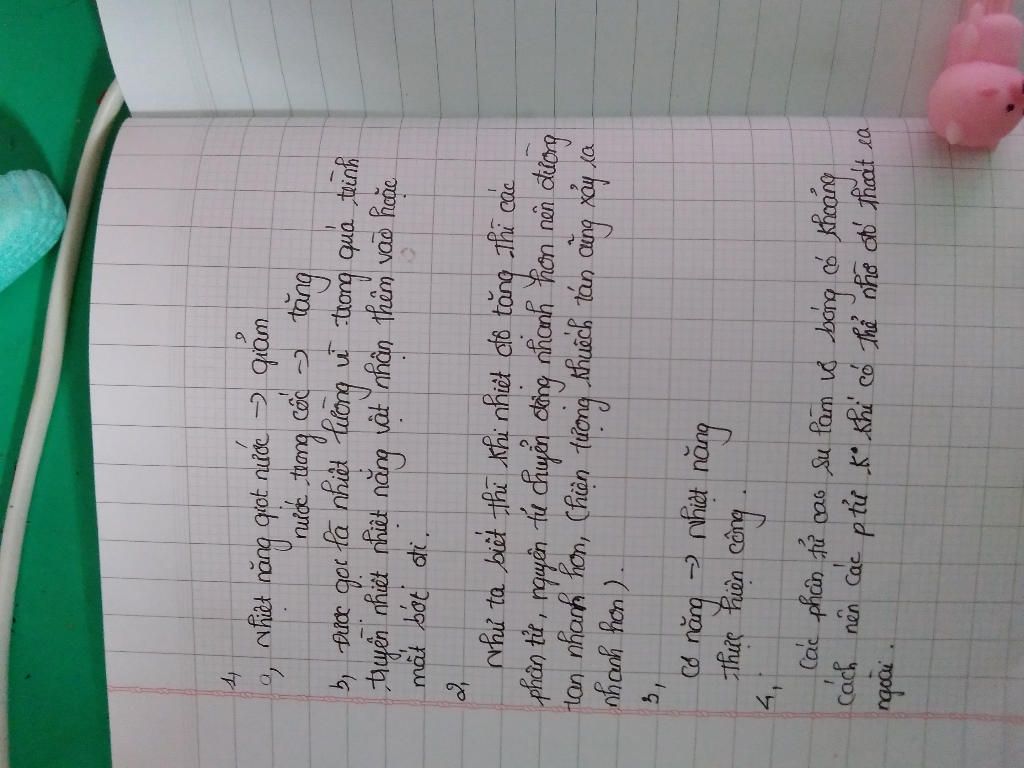 1,
a, Nhiệt năng giọt nước -> giảm
nước trong cốc -> tăng
b, Được gọi là nhiệt lượng vì trong quá trình
truyền nhiệt nhiệt năng vật nhận thêm vào hoặc
mất bớt đi.
2,
Như ta biết thì khi nhiệt độ tăng thì các
phân tử, nguyên tử chuyển động nhanh hơn nên đường
tan nhanh hơn, (hiện tượng khuếch tán cũng xảy ra
nhanh hơn).
3,
Cơ năng -> Nhiệt năng
Thực hiện công.
4,
Các phân tử cao su làm vỏ bóng có khoảng
cách nên các ptử k° khí có thể nhờ đó thoát ra
ngoài.